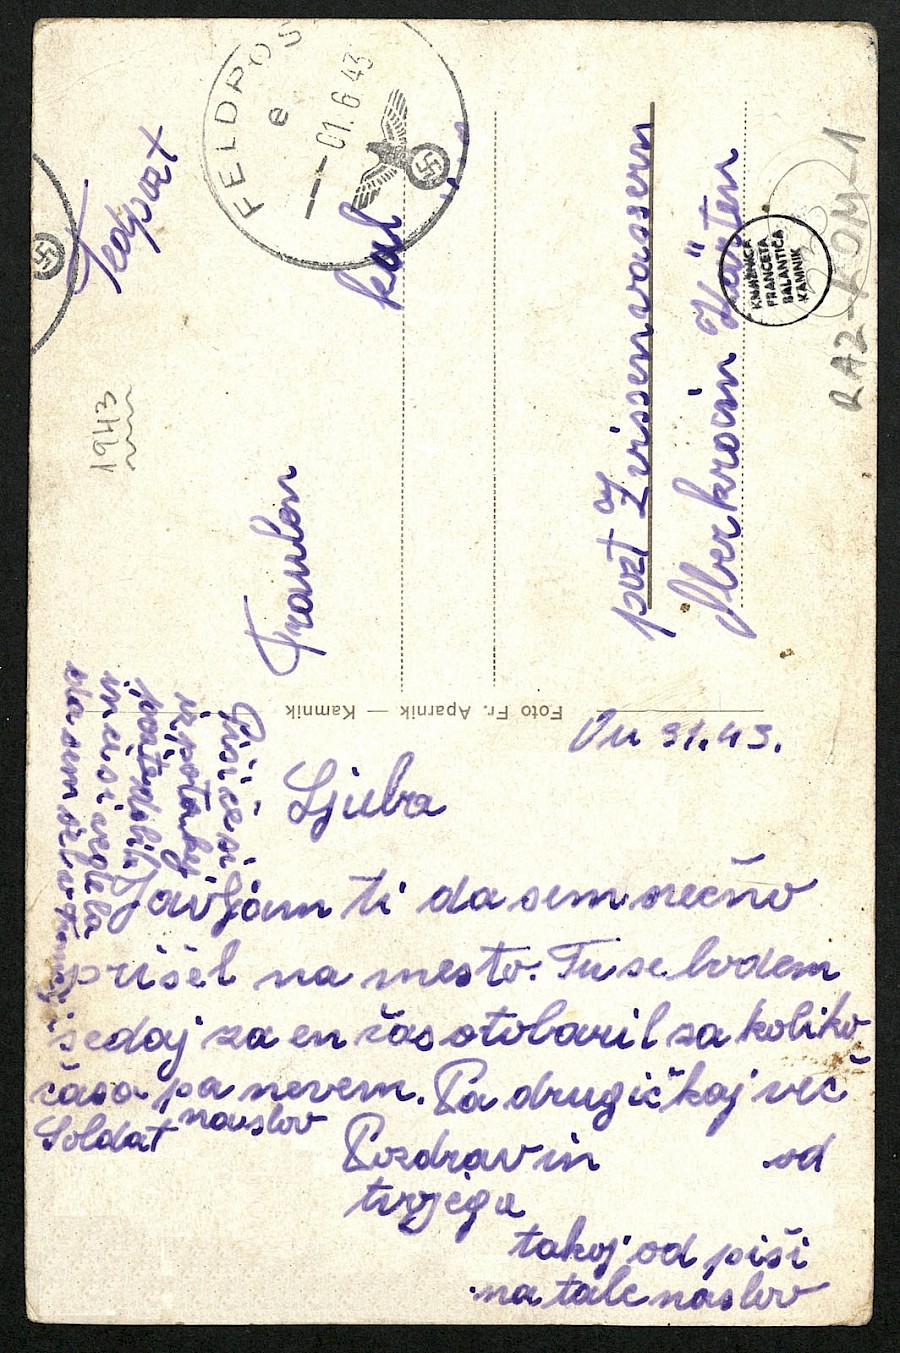 FELDPOST
e
01.6.43
Fedpozt
1943
Fraulen
kal
pozt Zirssenvassern
Oberkroin Kärten
KNJIŽNICA
FRANCETA
BALANTIČA
KAMNIK
RAZ-KOM-1
Foto Fr. Aparnik — Kamnik
On 31.43.
Ljuba
Javljam ti da sem srečno
prišel na mesto. Tu se bodem
sedaj za en čas otobaril za koliko
časa pa nevem. Pa drugič kaj več
Soldat naslov
Pozdrav in od
tvojega
takoj od piši
na tale naslov
Piši če si